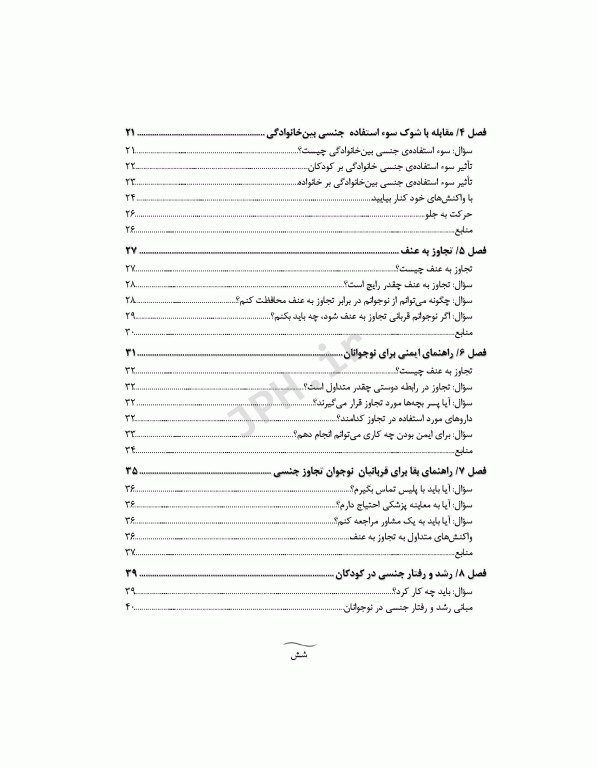 فصل ۴/ مقابله با شوک سوء استفاده جنسی بین‌خانوادگی ........ ۲۱
سؤال: سوء استفاده‌ی جنسی بین‌خانوادگی چیست؟ ........ ۲۱
تأثیر سوء استفاده‌ی جنسی خانوادگی بر کودکان ........ ۲۲
تأثیر سوء استفاده‌ی جنسی بین‌خانوادگی بر خانواده ........ ۲۳
با واکنش‌های خود کنار بیایید ........ ۲۴
حرکت به جلو ........ ۲۶
منابع ........ ۲۶
فصل ۵/ تجاوز به عنف ........ ۲۷
تجاوز به عنف چیست؟ ........ ۲۷
سؤال: تجاوز به عنف چقدر رایج است؟ ........ ۲۸
سؤال: چگونه می‌توانم از نوجوانم در برابر تجاوز به عنف محافظت کنم؟ ........ ۲۸
سؤال: اگر نوجوانم قربانی تجاوز به عنف شود، چه باید بکنم؟ ........ ۲۹
منابع ........ ۳۰
فصل ۶/ راهنمای ایمنی برای نوجوانان ........ ۳۱
تجاوز به عنف چیست؟ ........ ۳۲
سؤال: تجاوز در رابطه دوستی چقدر متداول است؟ ........ ۳۲
سؤال: آیا پسر بچه‌ها مورد تجاوز قرار می‌گیرند؟ ........ ۳۲
داروهای مورد استفاده در تجاوز کدامند؟ ........ ۳۲
سؤال: برای ایمن بودن چه کاری می‌توانم انجام دهم؟ ........ ۳۳
منابع ........ ۳۴
فصل ۷/ راهنمای بقا برای قربانیان نوجوان تجاوز جنسی ........ ۳۵
سؤال: آیا باید با پلیس تماس بگیرم؟ ........ ۳۶
سؤال: آیا به معاینه پزشکی احتیاج دارم؟ ........ ۳۶
سؤال: آیا باید به یک مشاور مراجعه کنم؟ ........ ۳۶
واکنش‌های متداول به تجاوز به عنف ........ ۳۶
منابع ........ ۳۷
فصل ۸/ رشد و رفتار جنسی در کودکان ........ ۳۹
سؤال: باید چه کار کرد؟ ........ ۳۹
مبانی رشد و رفتار جنسی در نوجوانان ........ ۴۰
شش
JPH.ir